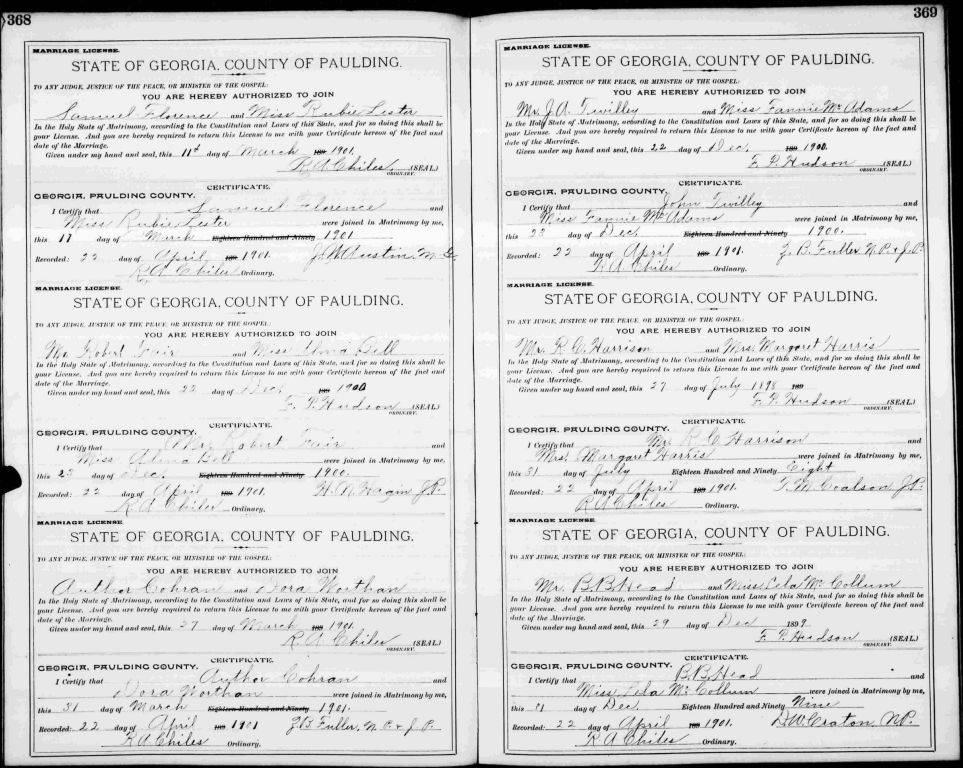 368
MARRIAGE LICENSE.
STATE OF GEORGIA, COUNTY OF PAULDING.
TO ANY JUDGE, JUSTICE OF THE PEACE, OR MINISTER OF THE GOSPEL:
YOU ARE HEREBY AUTHORIZED TO JOIN
Samuel Florence and Miss Rubie Lester
In the Holy State of Matrimony, according to the Constitution and Laws of this State, and for so doing this shall be
your License. And you are hereby required to return this License to me with your Certificate hereon of the fact and
date of the Marriage.
Given under my hand and seal, this 11th day of March 189 1901.
R A Chiles (SEAL)
ORDINARY.
CERTIFICATE.
GEORGIA, PAULDING COUNTY.
I Certify that Samuel Florence and
Miss Rubie Lester were joined in Matrimony by me,
this 17 day of March Eighteen Hundred and Ninety 1901
Recorded: 22 day of April 189 1901. J. W. Austin, M. G.
R A Chiles Ordinary.
MARRIAGE LICENSE.
STATE OF GEORGIA, COUNTY OF PAULDING.
TO ANY JUDGE, JUSTICE OF THE PEACE, OR MINISTER OF THE GOSPEL:
YOU ARE HEREBY AUTHORIZED TO JOIN
Mr. Robert Fair and Miss Alma Bell
In the Holy State of Matrimony, according to the Constitution and Laws of this State, and for so doing this shall be
your License. And you are hereby required to return this License to me with your Certificate hereon of the fact and
date of the Marriage.
Given under my hand and seal, this 22 day of Dec. 189 1900
F. P. Hudson (SEAL)
ORDINARY.
CERTIFICATE.
GEORGIA, PAULDING COUNTY.
I Certify that Mr. Robert Fair and
Miss Alma Bell were joined in Matrimony by me,
this 23 day of Dec. Eighteen Hundred and Ninety 1900.
Recorded: 22 day of April 189 1901. H. N. Hagin J.P.
R A Chiles Ordinary.
MARRIAGE LICENSE
STATE OF GEORGIA, COUNTY OF PAULDING.
TO ANY JUDGE, JUSTICE OF THE PEACE, OR MINISTER OF THE GOSPEL:
YOU ARE HEREBY AUTHORIZED TO JOIN
Author Cohran and Dora Worthan
In the Holy State of Matrimony, according to the Constitution and Laws of this State, and for so doing this shall be
your License. And you are hereby required to return this License to me with your Certificate hereon of the fact and
date of the Marriage.
Given under my hand and seal, this 27 day of March 189 1901.
R. A. Chiles (SEAL)
ORDINARY.
CERTIFICATE.
GEORGIA, PAULDING COUNTY.
I Certify that Author Cohran and
Dora Worthan were joined in Matrimony by me,
this 31 day of March Eighteen Hundred and Ninety 1901.
Recorded: 22 day of April 189 1901 J.B. Fuller, N.P. & J.P.
R A Chiles Ordinary.
369
MARRIAGE LICENSE.
STATE OF GEORGIA, COUNTY OF PAULDING.
TO ANY JUDGE, JUSTICE OF THE PEACE, OR MINISTER OF THE GOSPEL:
YOU ARE HEREBY AUTHORIZED TO JOIN
Mr. J. A. Twilley and Miss Fannie McAdams
In the Holy State of Matrimony, according to the Constitution and Laws of this State, and for so doing this shall be
your License. And you are hereby required to return this License to me with your Certificate hereon of the fact and
date of the Marriage.
Given under my hand and seal, this 22 day of Dec. 189 1900.
F. P. Hudson (SEAL)
ORDINARY.
CERTIFICATE.
GEORGIA, PAULDING COUNTY.
I Certify that John Twilley and
Miss Fannie McAdams were joined in Matrimony by me,
this 23 day of Dec. Eighteen Hundred and Ninety 1900.
Recorded: 22 day of April 189 1901. J. B. Fuller N.P. & J.P.
R A Chiles Ordinary.
MARRIAGE LICENSE.
STATE OF GEORGIA, COUNTY OF PAULDING.
TO ANY JUDGE, JUSTICE OF THE PEACE, OR MINISTER OF THE GOSPEL:
YOU ARE HEREBY AUTHORIZED TO JOIN
Mr. R. C. Harrison and Mrs. Margaret Harris
In the Holy State of Matrimony, according to the Constitution and Laws of this State, and for so doing this shall be
your License. And you are hereby required to return this License to me with your Certificate hereon of the fact and
date of the Marriage.
Given under my hand and seal, this 27 day of July 1898 189
F. P. Hudson (SEAL)
ORDINARY.
CERTIFICATE.
GEORGIA, PAULDING COUNTY.
I Certify that Mr. R. C. Harrison and
Mrs. Margaret Harris were joined in Matrimony by me,
this 31 day of July Eighteen Hundred and Ninety Eight
Recorded: 22 day of April 189 1901. T. M. Coalson J.P.
R A Chiles Ordinary.
MARRIAGE LICENSE
STATE OF GEORGIA, COUNTY OF PAULDING.
TO ANY JUDGE, JUSTICE OF THE PEACE, OR MINISTER OF THE GOSPEL:
YOU ARE HEREBY AUTHORIZED TO JOIN
Mr. B. B. Head and Miss Lela McCollum
In the Holy State of Matrimony, according to the Constitution and Laws of this State, and for so doing this shall be
your License. And you are hereby required to return this License to me with your Certificate hereon of the fact and
date of the Marriage.
Given under my hand and seal, this 29 day of Dec 1899.
F. P. Hudson (SEAL)
ORDINARY.
CERTIFICATE.
GEORGIA, PAULDING COUNTY.
I Certify that B. B. Head and
Miss Lela McCollum were joined in Matrimony by me,
this 31 day of Dec. Eighteen Hundred and Ninety Nine
Recorded: 22 day of April 189 1901. D. W. Craton, N.P.
R A Chiles Ordinary.